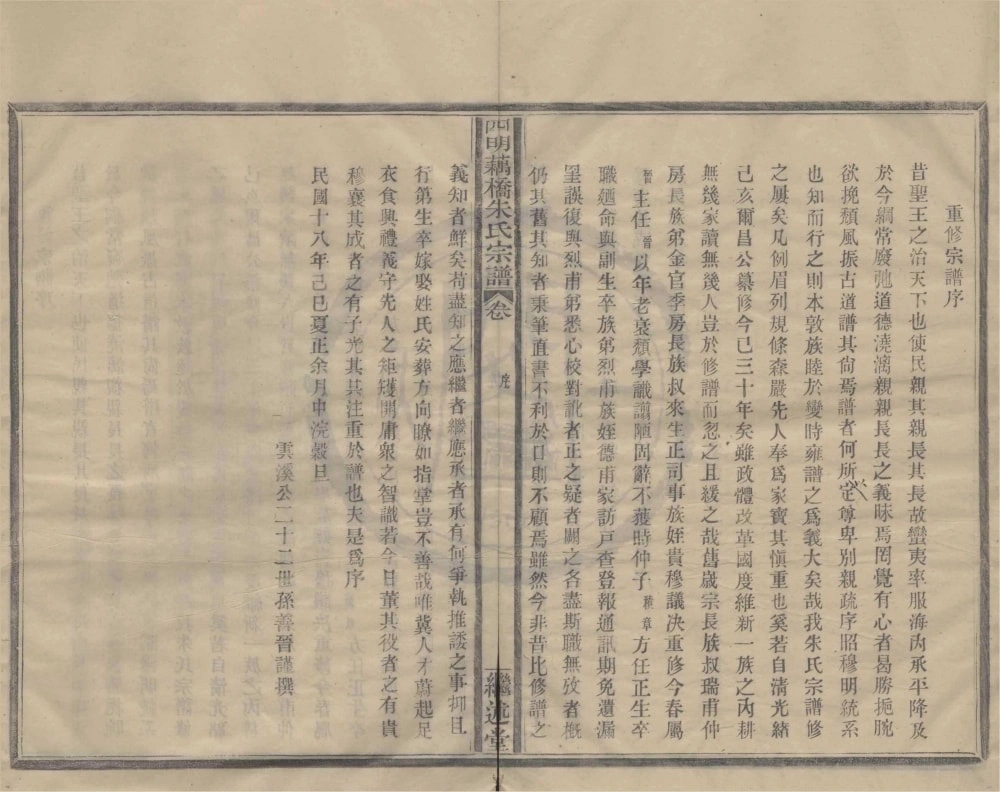 重修宗譜序
昔聖王之治天下也使民親其親長其長故蠻夷率服海內承平降及
於今綱常廢弛道德澆漓親親長長之義昧焉罔覺有心者曷勝扼腕
欲挽頹風振古道譜其尙焉譜者何所以定尊卑別親疏序昭穆明統系
也知而行之則本敦族睦於變時雍譜之爲義大矣哉我朱氏宗譜修
之屢矣凡例眉列規條森嚴先人奉爲家寶其愼重也奚若自清光緒
己亥爾昌公纂修今已三十年矣雖政體改革國度維新一族之內耕
無幾家讀無幾人豈於修譜而忽之且緩之哉舊歲宗長族叔瑞甫仲
房長族弟金官季房長族叔來生正司事族姪貴穆議決重修今春屬
晉主任晉以年老衰頹學識譾陋固辭不獲時仲子積章方任正生卒
職廼命與副生卒族弟烈甫族姪德甫家訪戶查登報通訊期免遺漏
罣誤復與烈甫弟悉心校對訛者正之疑者闕之各盡斯職無攷者槪
仍其舊其知者秉筆直書不利於口則不顧焉雖然今非昔比修譜之
四明藕橋朱氏宗譜 卷 序 繼述堂
義知者鮮矣苟盡知之應繼者繼應承者承有何爭執推諉之事抑且
行第生卒嫁娶姓氏安葬方向瞭如指掌豈不善哉唯冀人才蔚起足
衣食興禮義守先人之矩矱開庸衆之智識若今日董其役者之有貴
穆襄其成者之有子光其共注重於譜也夫是爲序
民國十八年己巳夏正余月中浣穀旦
雲溪公二十二世孫善晉謹撰